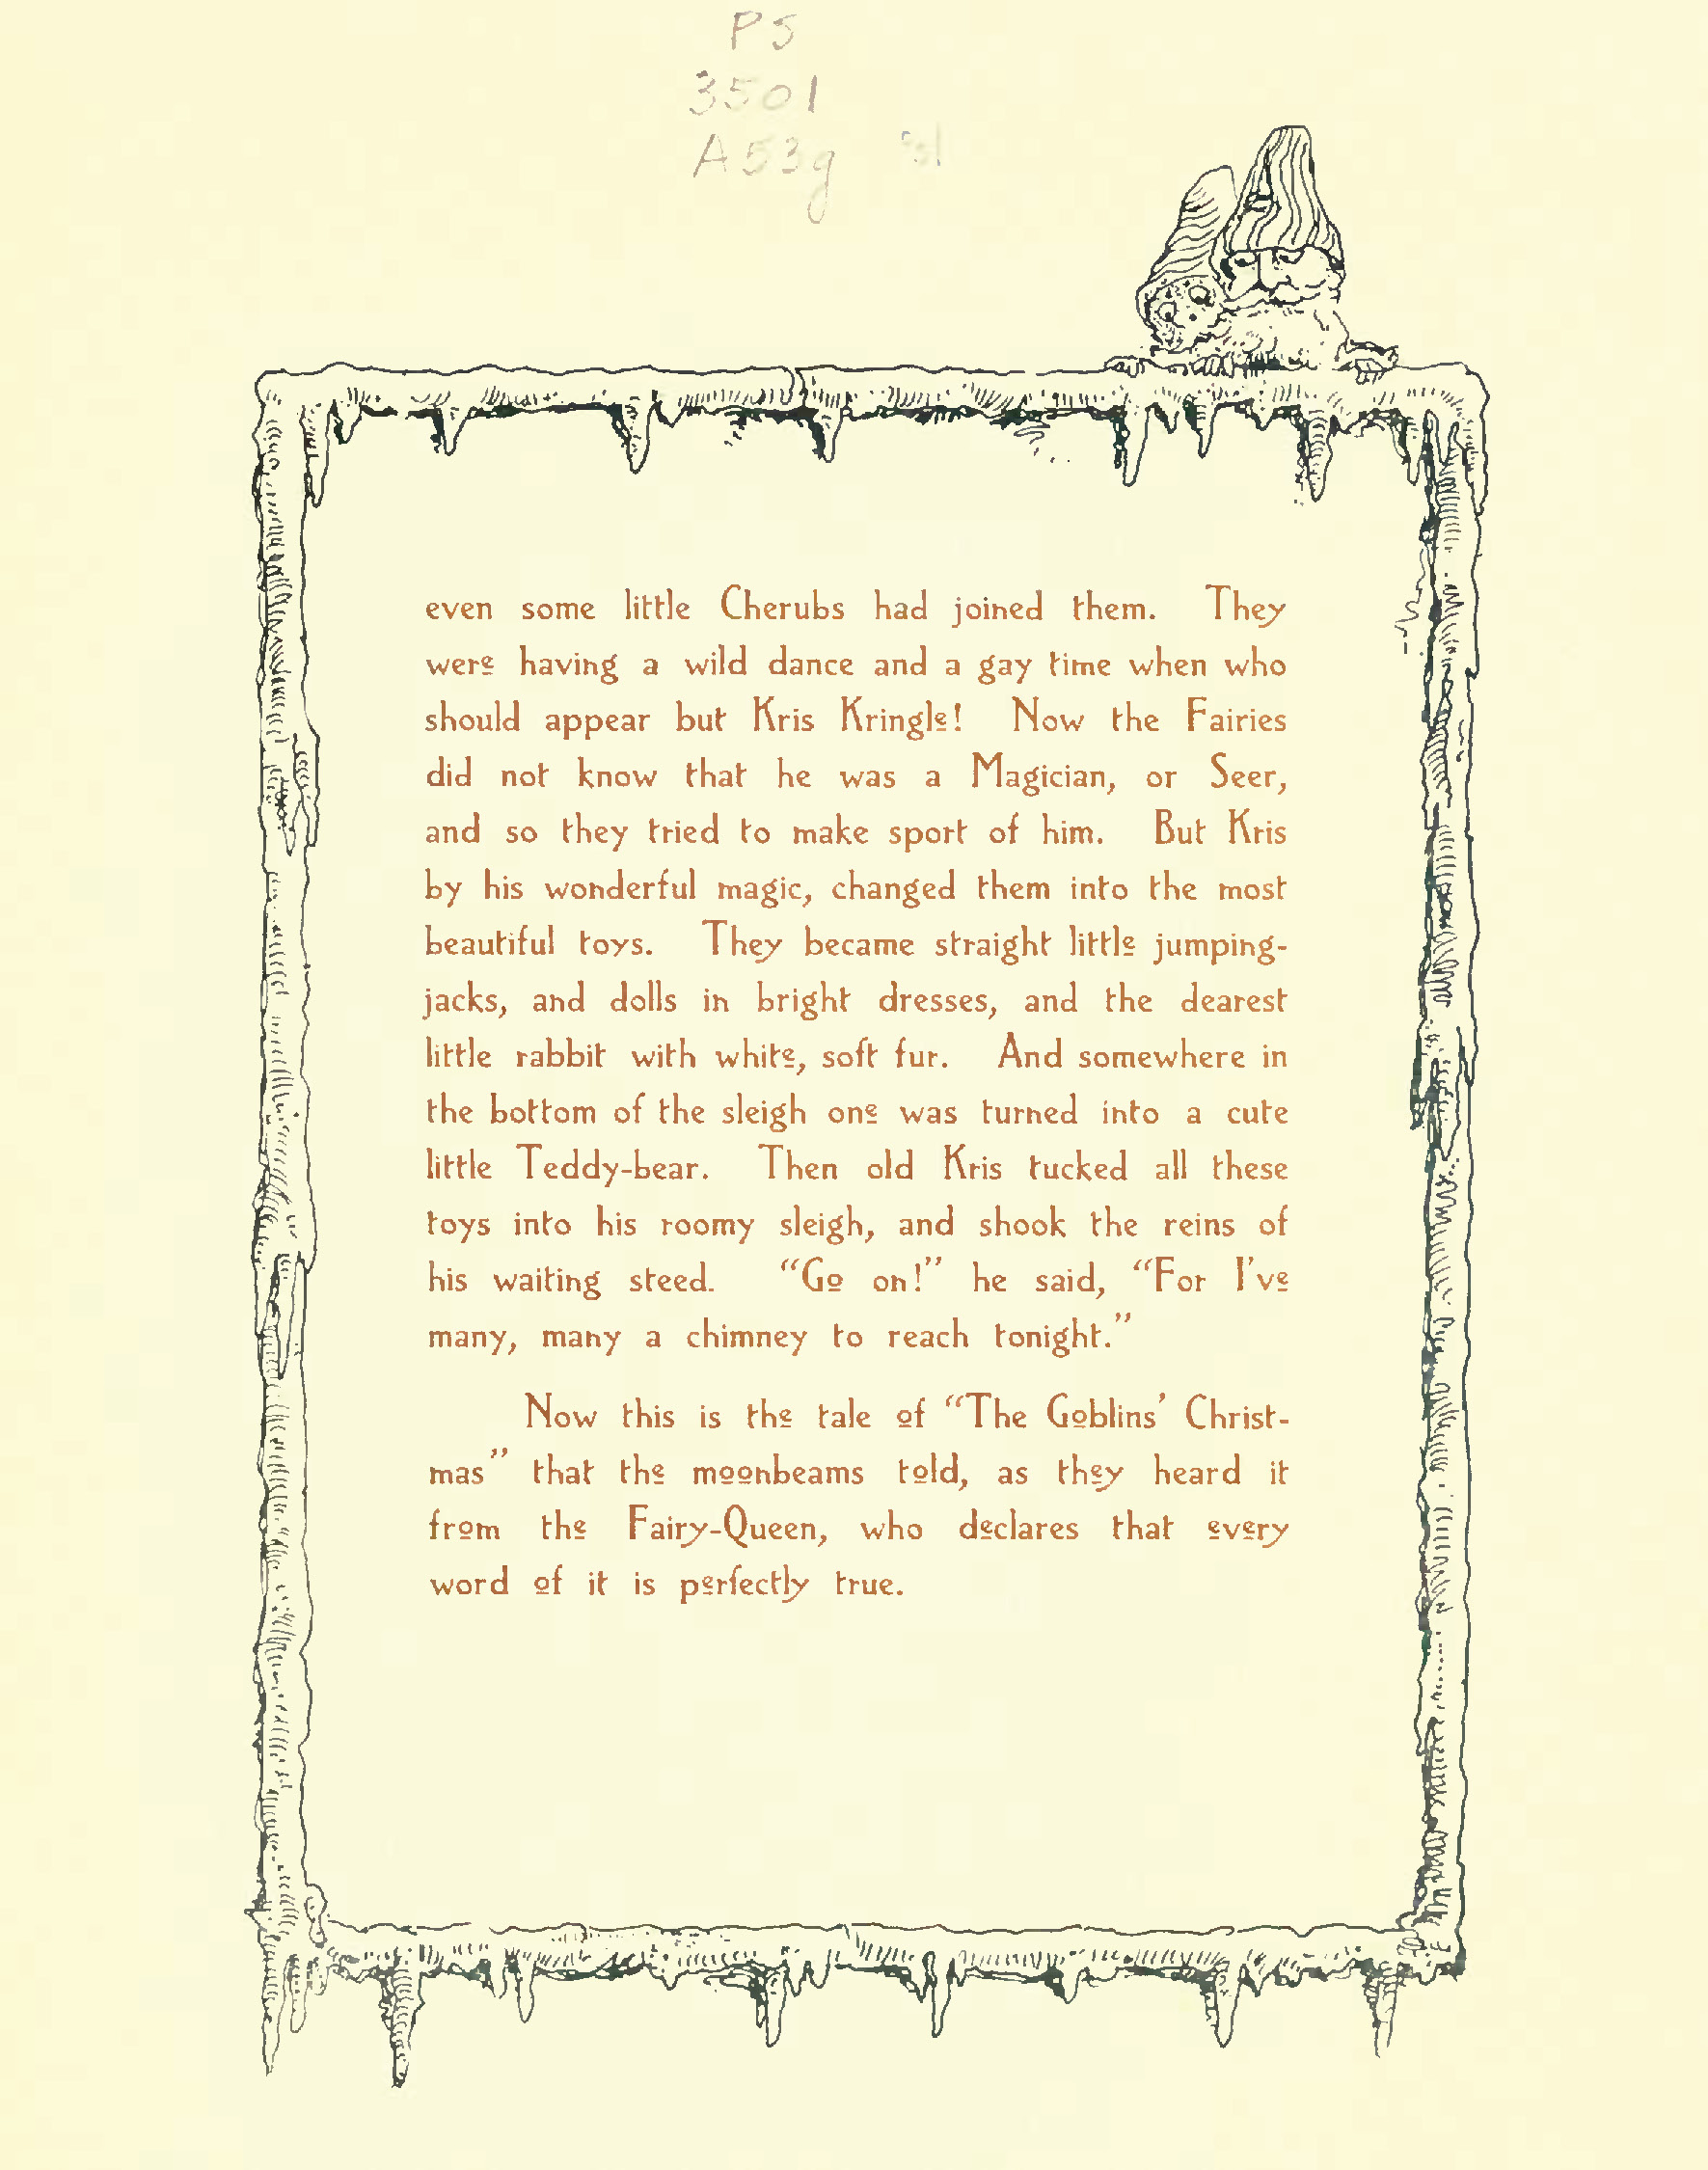 PS
3501
A53g
even some little Cherubs had joined them. They
were having a wild dance and a gay time when who
should appear but Kris Kringle! Now the Fairies
did not know that he was a Magician, or Seer,
and so they tried to make sport of him. But Kris
by his wonderful magic, changed them into the most
beautiful toys. They became straight little jumping-
jacks, and dolls in bright dresses, and the dearest
little rabbit with white, soft fur. And somewhere in
the bottom of the sleigh one was turned into a cute
little Teddy-bear. Then old Kris tucked all these
toys into his roomy sleigh, and shook the reins of
his waiting steed. “Go on!” he said, “For I’ve
many, many a chimney to reach tonight.”
Now this is the tale of “The Goblins’ Christ-
mas” that the moonbeams told, as they heard it
from the Fairy-Queen, who declares that every
word of it is perfectly true.